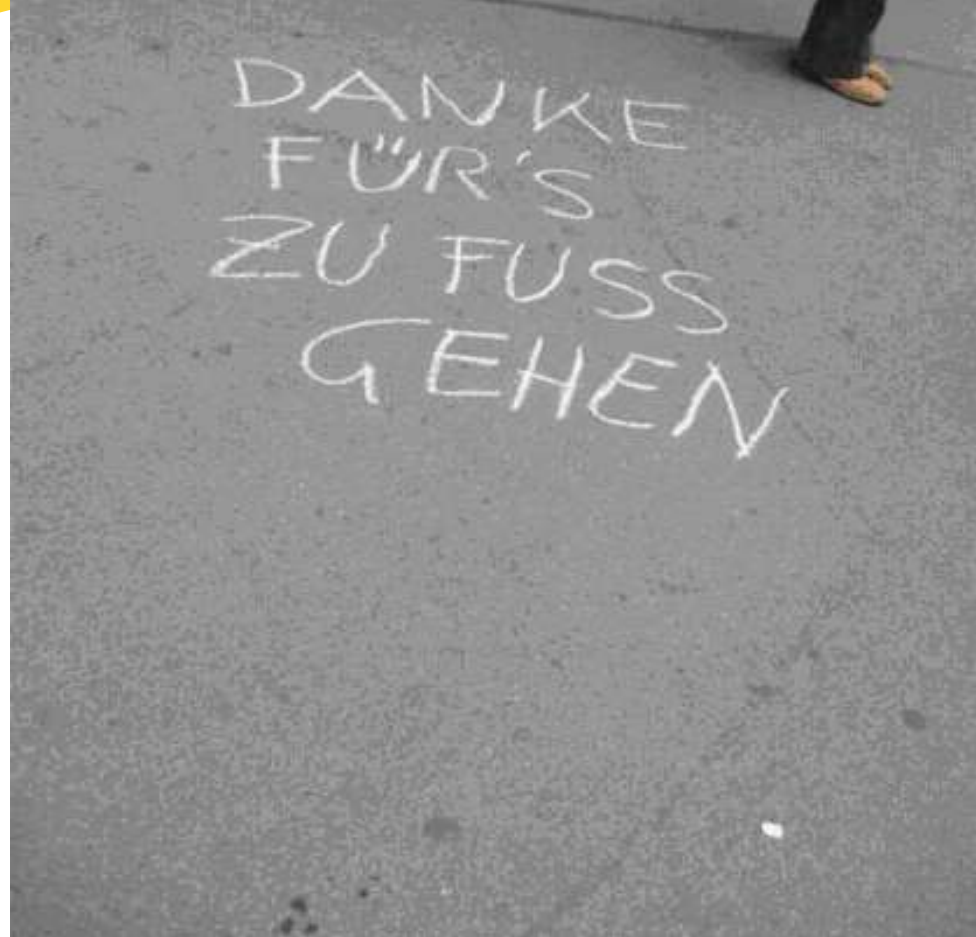 DANKE
FÜR'S
ZU FUSS
GEHEN